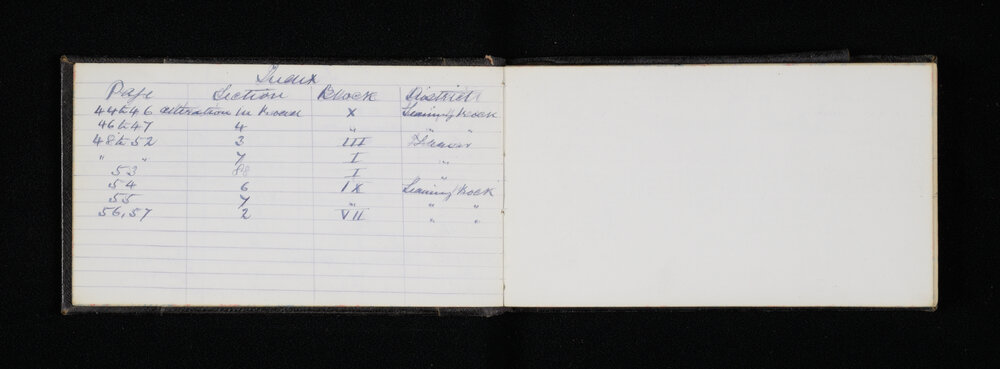 Index
Page Section Block District
44 to 46 alteration in Road X Leaning Rock
46 to 47 4 " " "
48 to 52 3 III
" " 7 I "
53 88 I "
54 6 IX Leaning Rock
55 7 " " "
56, 57 2 VII " "